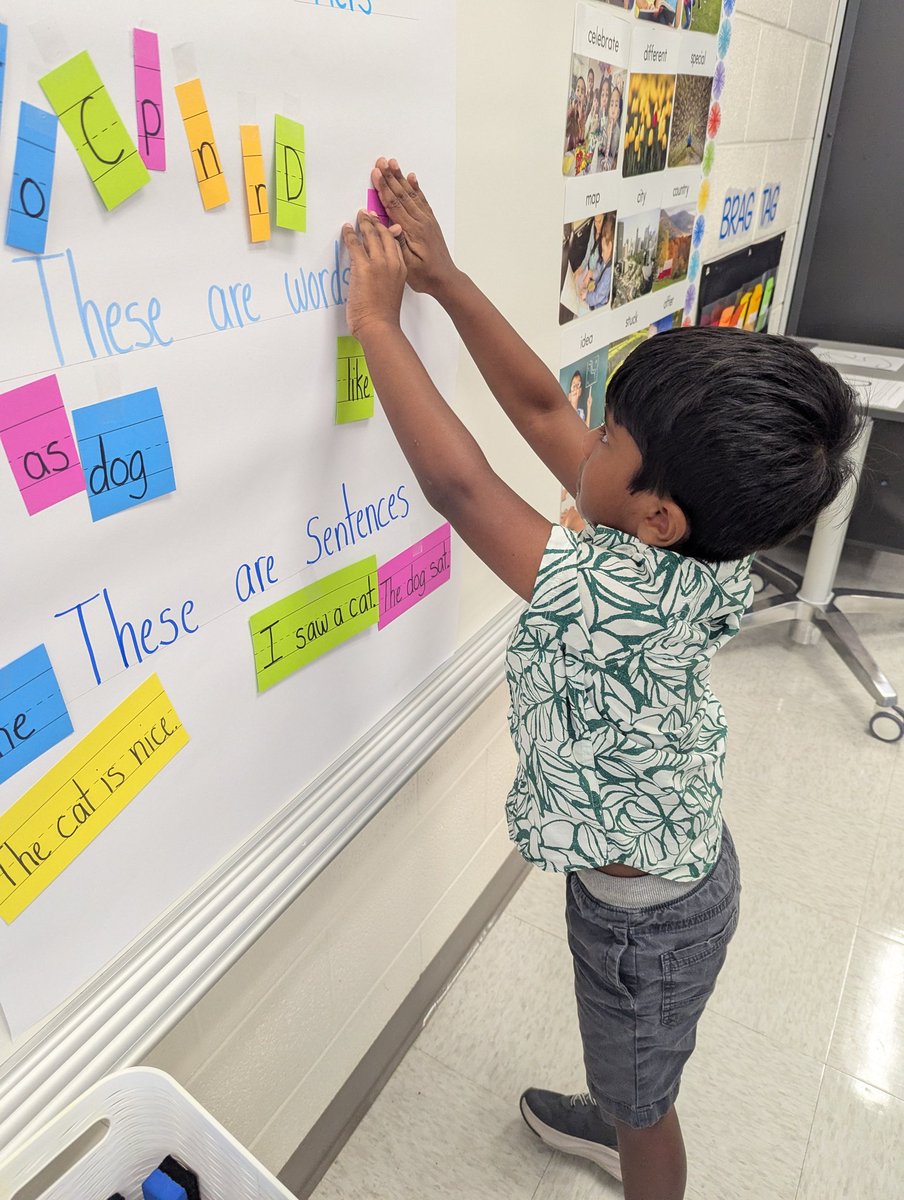 o C p n r D
These are words
like
as dog
These are Sentences
I saw a cat. The dog sat.
The cat is nice.
celebrate different special
map city country
idea stuck after
BRAG TAG